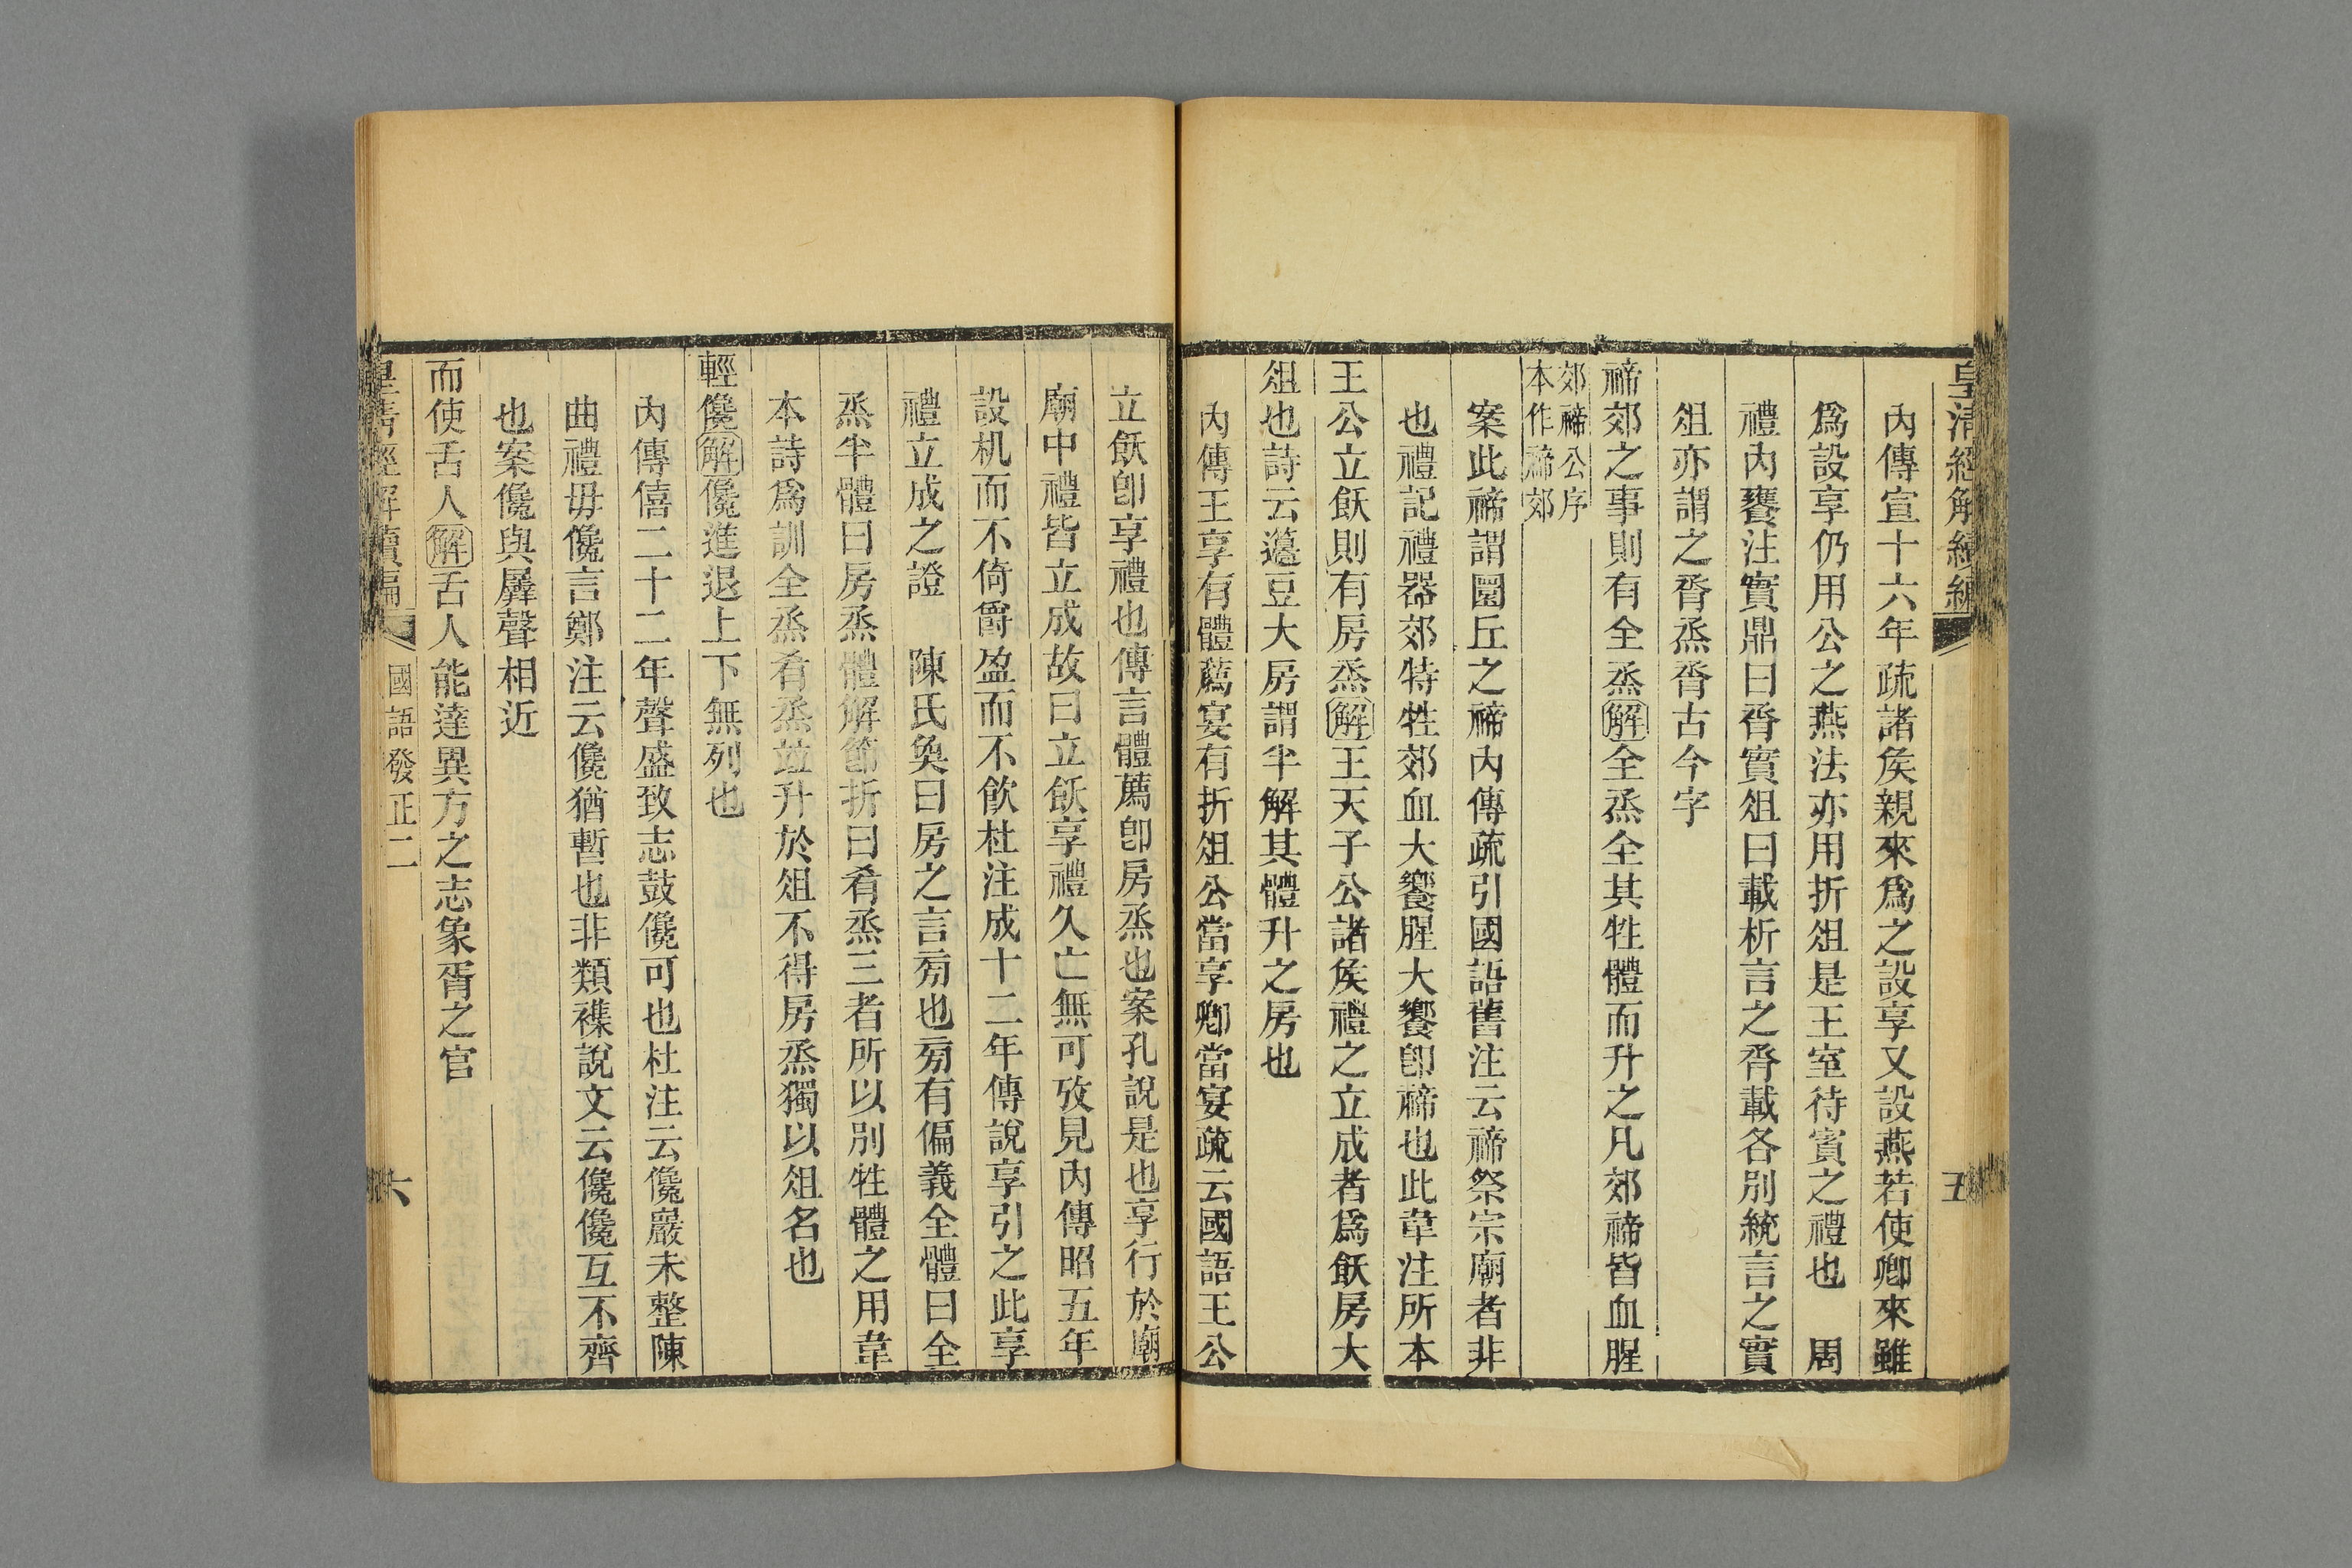 皇清經解續編
五
內傳宣十六年疏諸矦親來爲之設享又設燕若使卿來雖
爲設享仍用公之燕法亦用折俎是王室待賓之禮也　周
禮內饔注實鼎曰脀實俎曰載析言之脀載各別統言之實
俎亦謂之脀烝脀古今字
禘郊之事則有全烝解全烝全其牲體而升之凡郊禘皆血腥
郊禘公序
本作禘郊
案此禘謂圜丘之禘內傳疏引國語舊注云禘祭宗廟者非
也禮記禮器郊特牲郊血大饗腥大饗卽禘也此韋注所本
王公立飫則有房烝解王天子公諸矦禮之立成者爲飫房大
俎也詩云籩豆大房謂半解其體升之房也
內傳王享有體薦宴有折俎公當享卿當宴疏云國語王公
立飫卽享禮也傳言體薦卽房烝也案孔說是也享行於廟
廟中禮皆立成故曰立飫享禮久亡無可攷見內傳昭五年
設机而不倚爵盈而不飲杜注成十二年傳說享引之此享
禮立成之證　陳氏奐曰房之言㫄也㫄有偏義全體曰全
烝半體曰房烝體解節折曰肴烝三者所以別牲體之用韋
本詩爲訓全烝肴烝竝升於俎不得房烝獨以俎名也
輕儳解儳進退上下無列也
內傳僖二十二年聲盛致志鼓儳可也杜注云儳巖未整陳
曲禮毋儳言鄭注云儳猶暫也非類襍說文云儳儳互不齊
也案儳與羼聲相近
而使舌人解舌人能達異方之志象胥之官
皇清經解續編
國語發正二
六